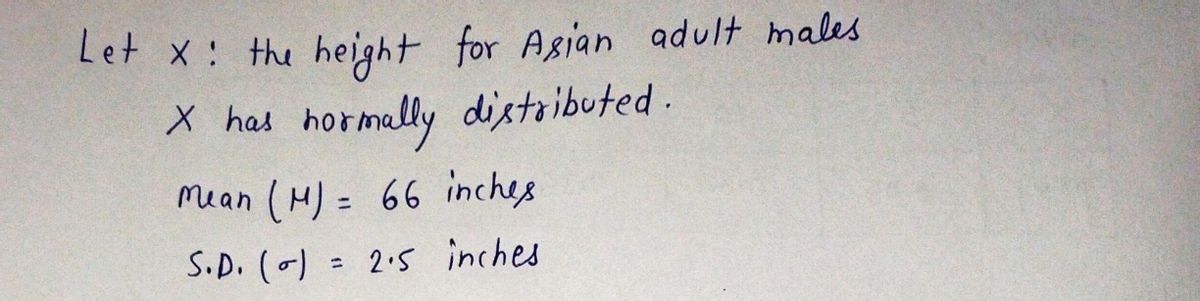 Let x : the height for Asian adult males
X has normally distributed.
Mean (μ) = 66 inches
S.D. (σ) = 2.5 inches